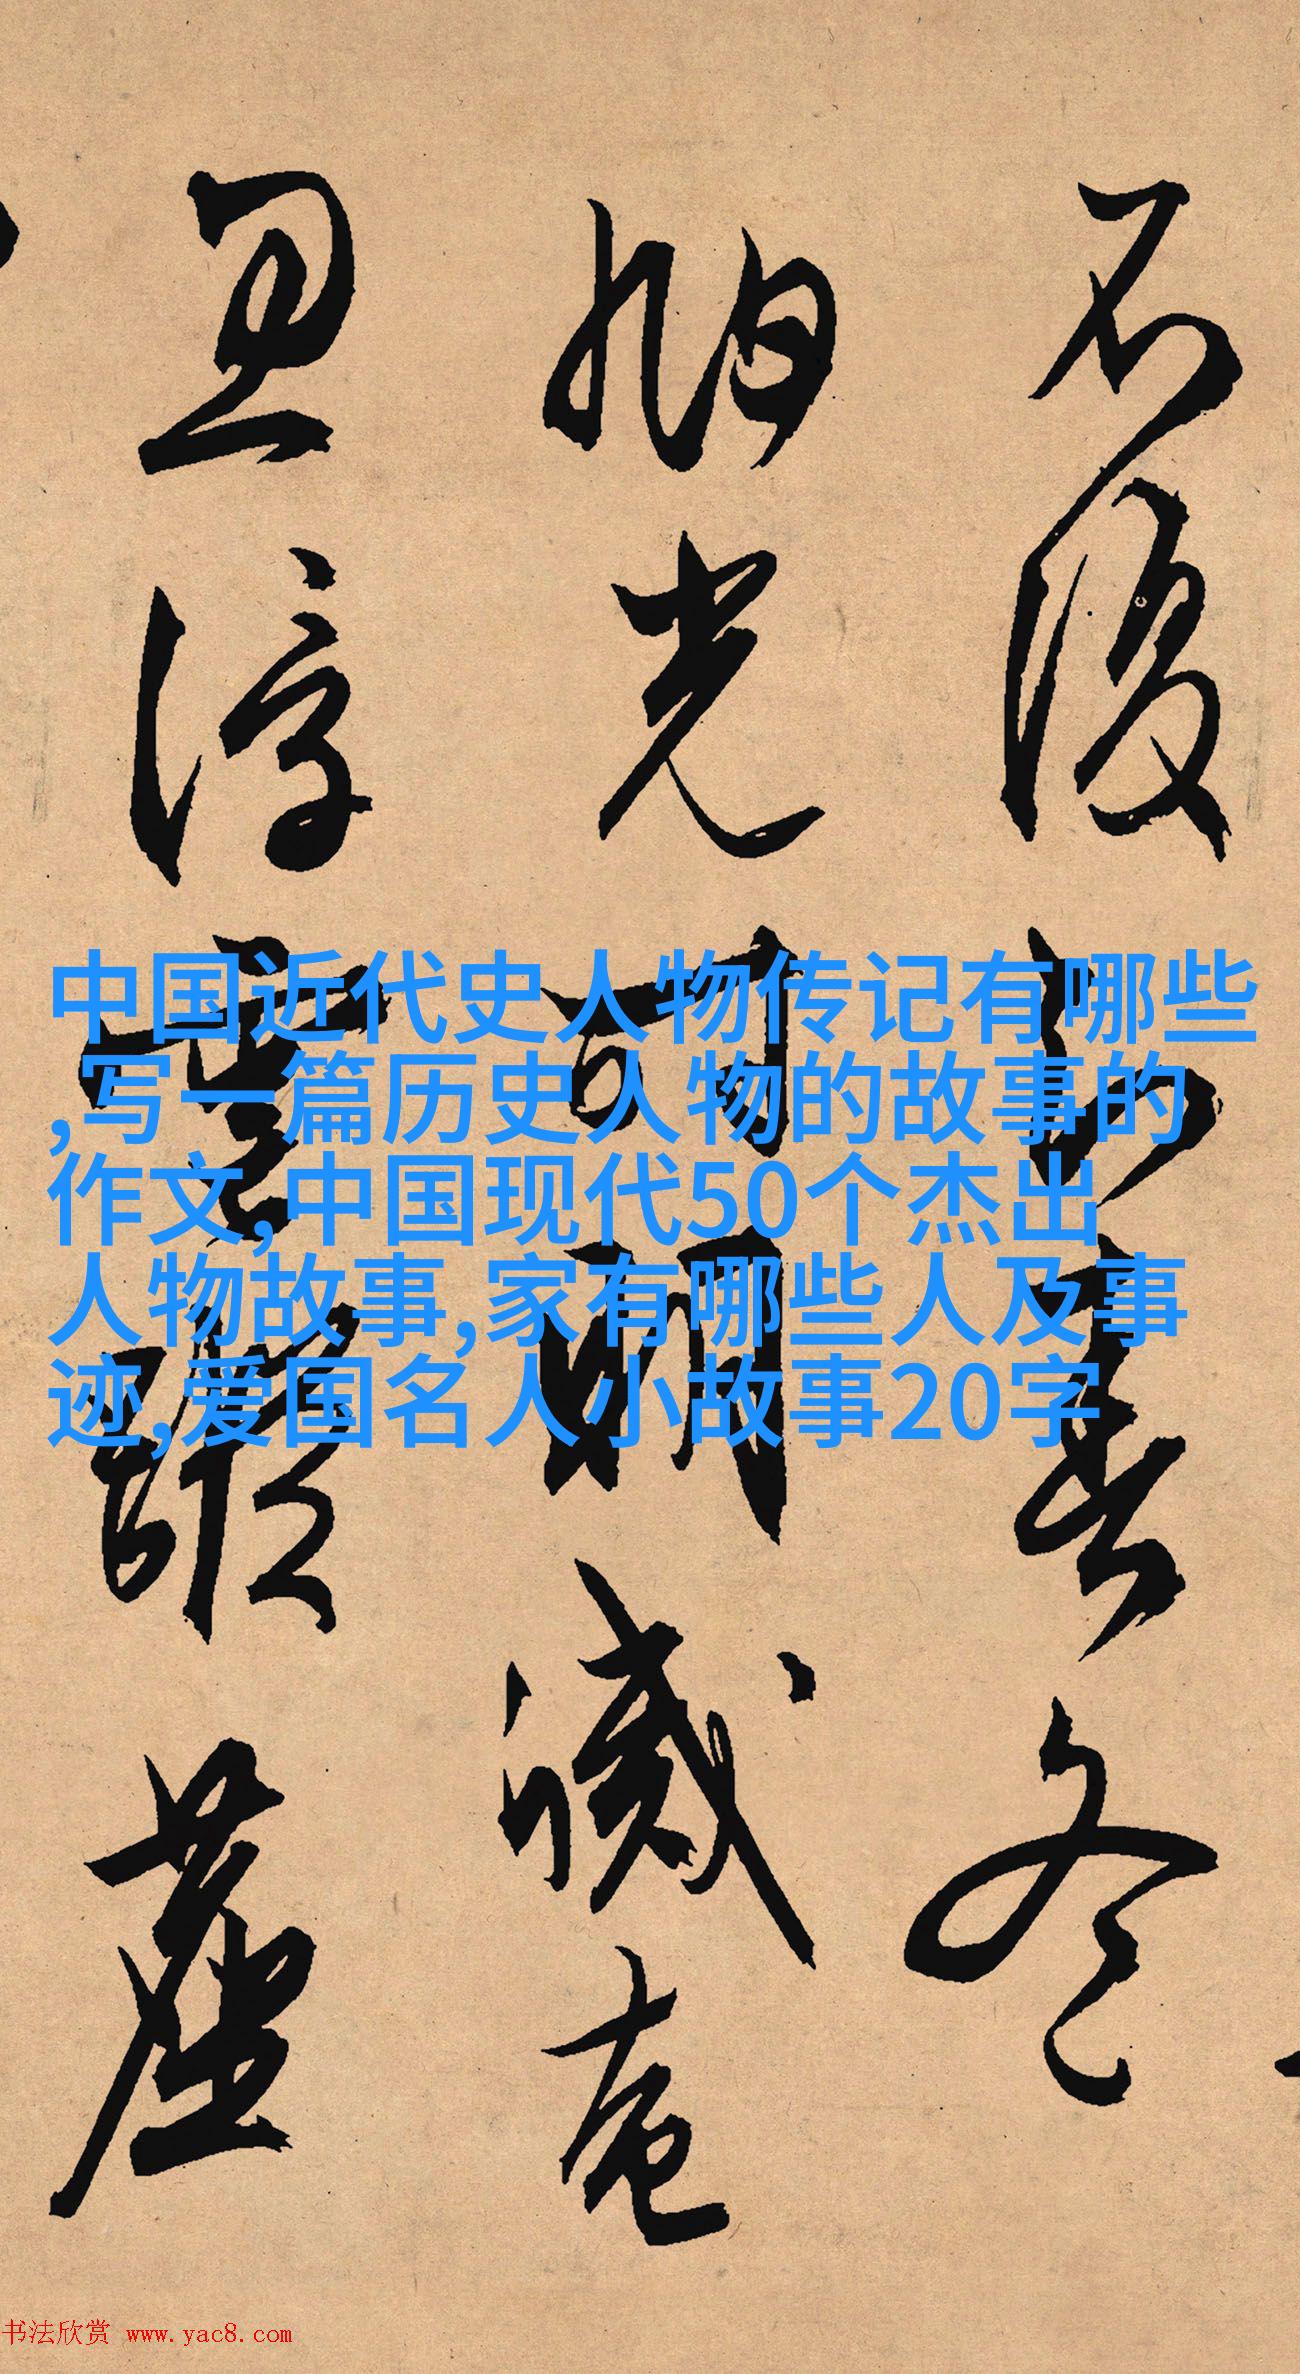 中国近代史人物传记有哪些
,写一篇历史人物的故事的
作文,中国现代50个杰出
人物故事,家有哪些人及事
迹,爱国名人小故事20字
復 春冬
光可明滅奄
忽浮雲
书法欣赏 www.yac8.com